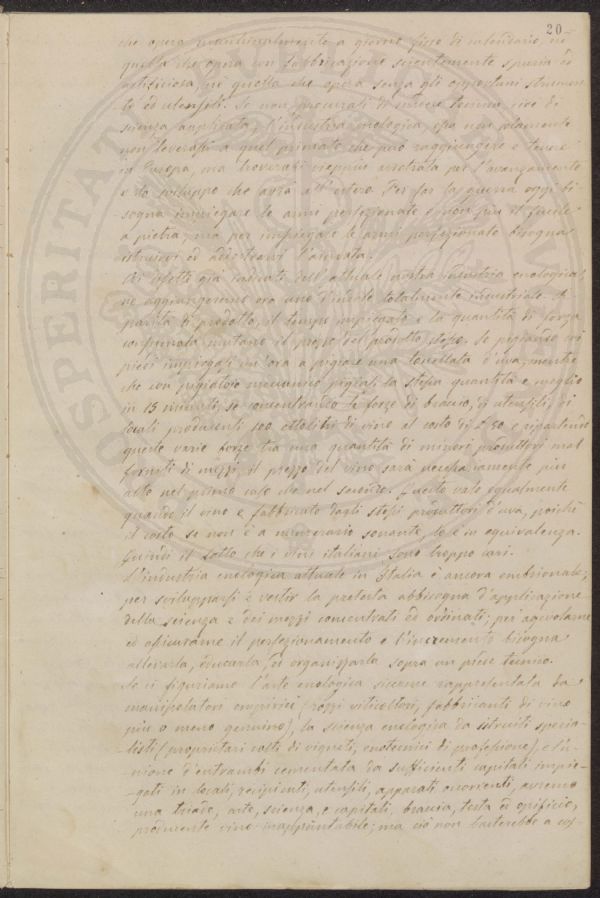 20
che opera macchinalmente a giorno fisso di calendario, nè
quella che opera un fabbricazione scientemente spuria ed
artificiosa, nè quella che opera senza gli opportuni strumen-
ti ed utensili. Se non procurati di mezzo tecnico, cioè di
scienza applicata, l'industria enologica, essa non solamente
non leverassi a quel primato che può raggiungere e tenere
in Europa, ma troverassi eziandio arretrata per l'avanzamento
e lo sviluppo che avrà all'estero. Per far la guerra oggi bi-
sogna impiegare le armi perfezionate e non più il fucile
a pietra; ma per impiegare le armi perfezionate bisogna
istruirsi ed addestrarsi l'armata.
Ai difetti già indicati dell'attuale nostra industria enologica,
ne aggiungeremo ora uno finale totalmente industriale. A
parità di prodotto, il tempo impiegato e la quantità di forza
consumata mutano il prezzo del prodotto stesso. Se pigiando coi
piedi impiegasi un'ora a pigiare una tonellata d'uva, mentre
che con pigiatoio meccanico pigiasi la stessa quantità e meglio
in 15 minuti; se concentrando le forze di braccio, di utensili, di
locali produconsi 100 ettolitri di vino al costo di £ 50 e ripartendo
queste varie forze tra una quantità di minori produttori mal
forniti di mezzi, il prezzo del vino sarà necessariamente più
alto nel primo caso che nel secondo. Questo vale egualmente
quando il vino è fabbricato dagli stessi produttori d'uva, poichè
il costo se non è a numerario sonante, lo è in equivalenza.
Quindi il fatto che i vini italiani sono troppo cari.
L'industria enologica attuale in Italia è ancora embrionale;
per svilupparsi e vestir la pretesta abbisogna d'applicazione
della scienza e dei mezzi concentrati ed ordinati; per agevolarne
ed assicurarne il perfezionamento e l'incremento bisogna
allevarla, educarla, ed organizzarla sopra un piede tecnico.
Se ci figuriamo l'arte enologica siccome rappresentata da
manipolatori empirici (rozzi viticoltori, fabbricanti di vino
più o meno genuino), la scienza enologica da istruiti specia-
listi (proprietari colti di vigneti, enotecnici di professione), e l'u-
nione d'entrambi cementata da sufficienti capitali impie-
gati in locali, recipienti, utensili, apparati, occorrenti, avremo
una triade, arte, scienza, e capitali, braccia, testa ed opificio,
producente vino inappuntabile; ma ciò non basterebbe a cos-